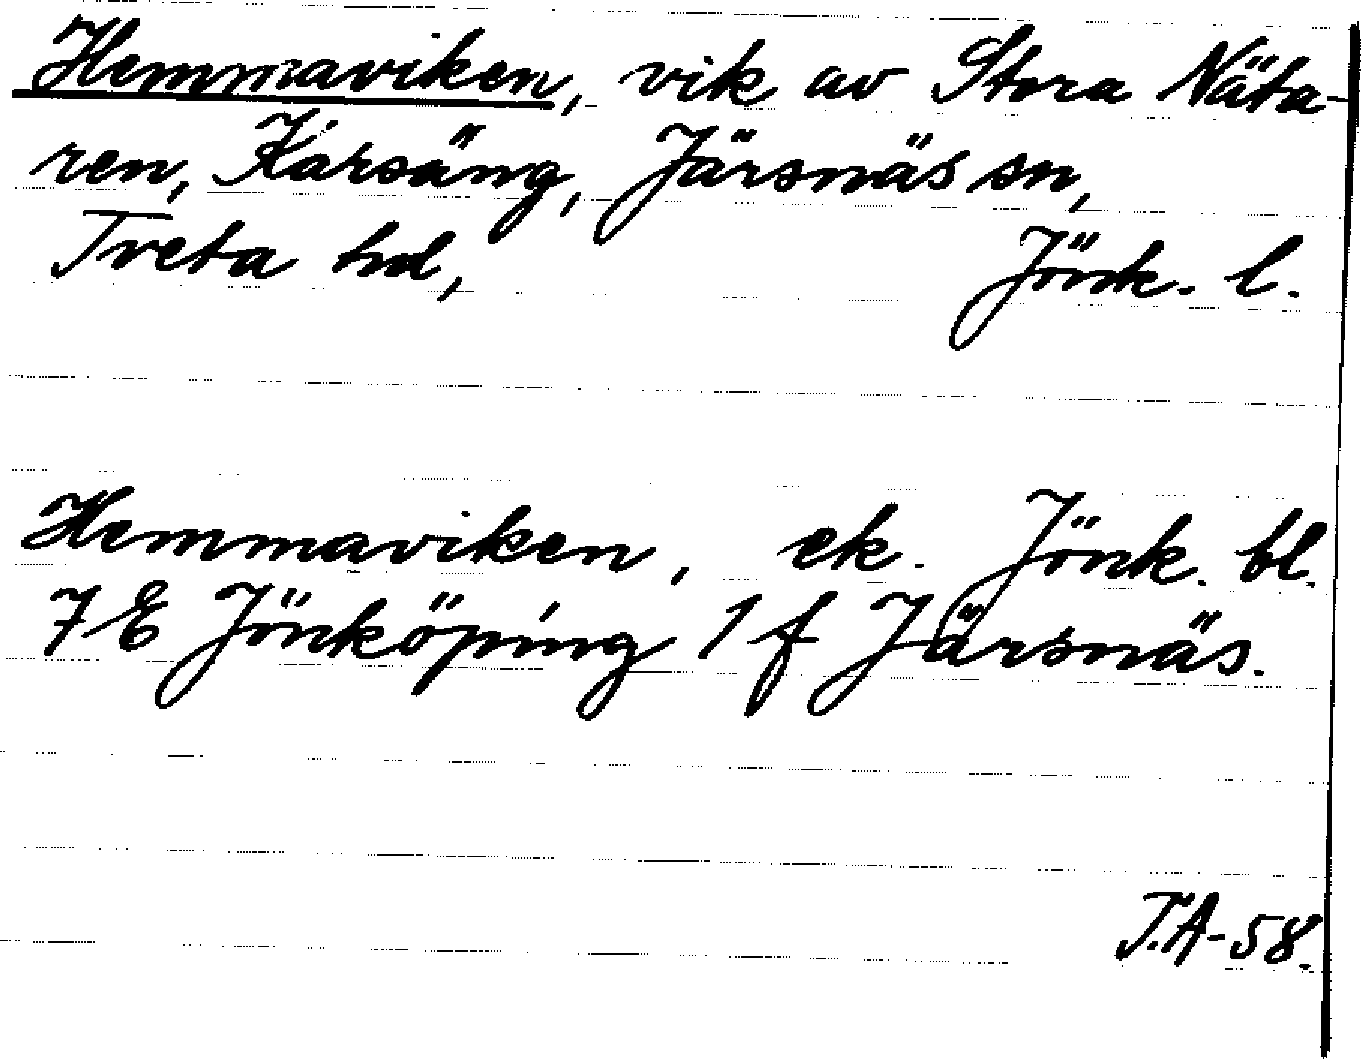 Hemmaviken, vik av Stora Näta-
ren, Karsäng, Järsnäs sn,
Tveta hd, Jönk. l.
Hemmaviken, ek. Jönk. bl.
7 E Jönköping 1 f Järsnäs.
T.A-58.